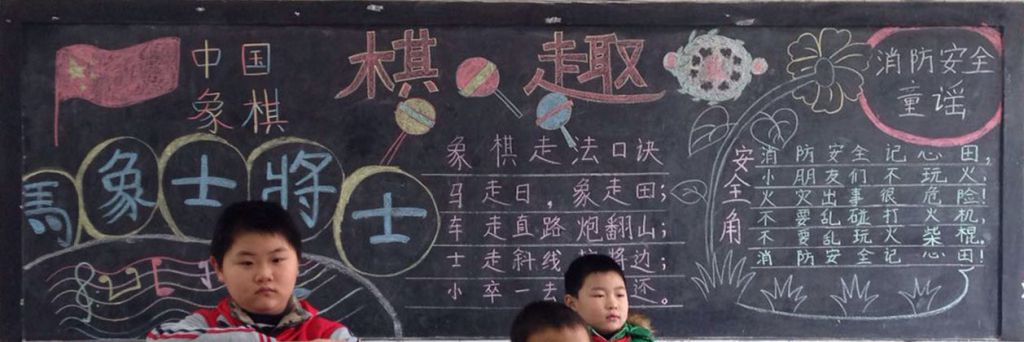 中国
象棋
棋趣
馬象士將士
象棋走法口诀
马走日，象走田；
车走直路炮翻山；
士走斜线 将边；
小卒一去 还。
消防安全
童谣
安全角
消防安全记心田，
小朋友们不玩火，
火灾出事很危险！
不要乱碰打火机，
不要乱玩火柴棍，
消防安全记心田！